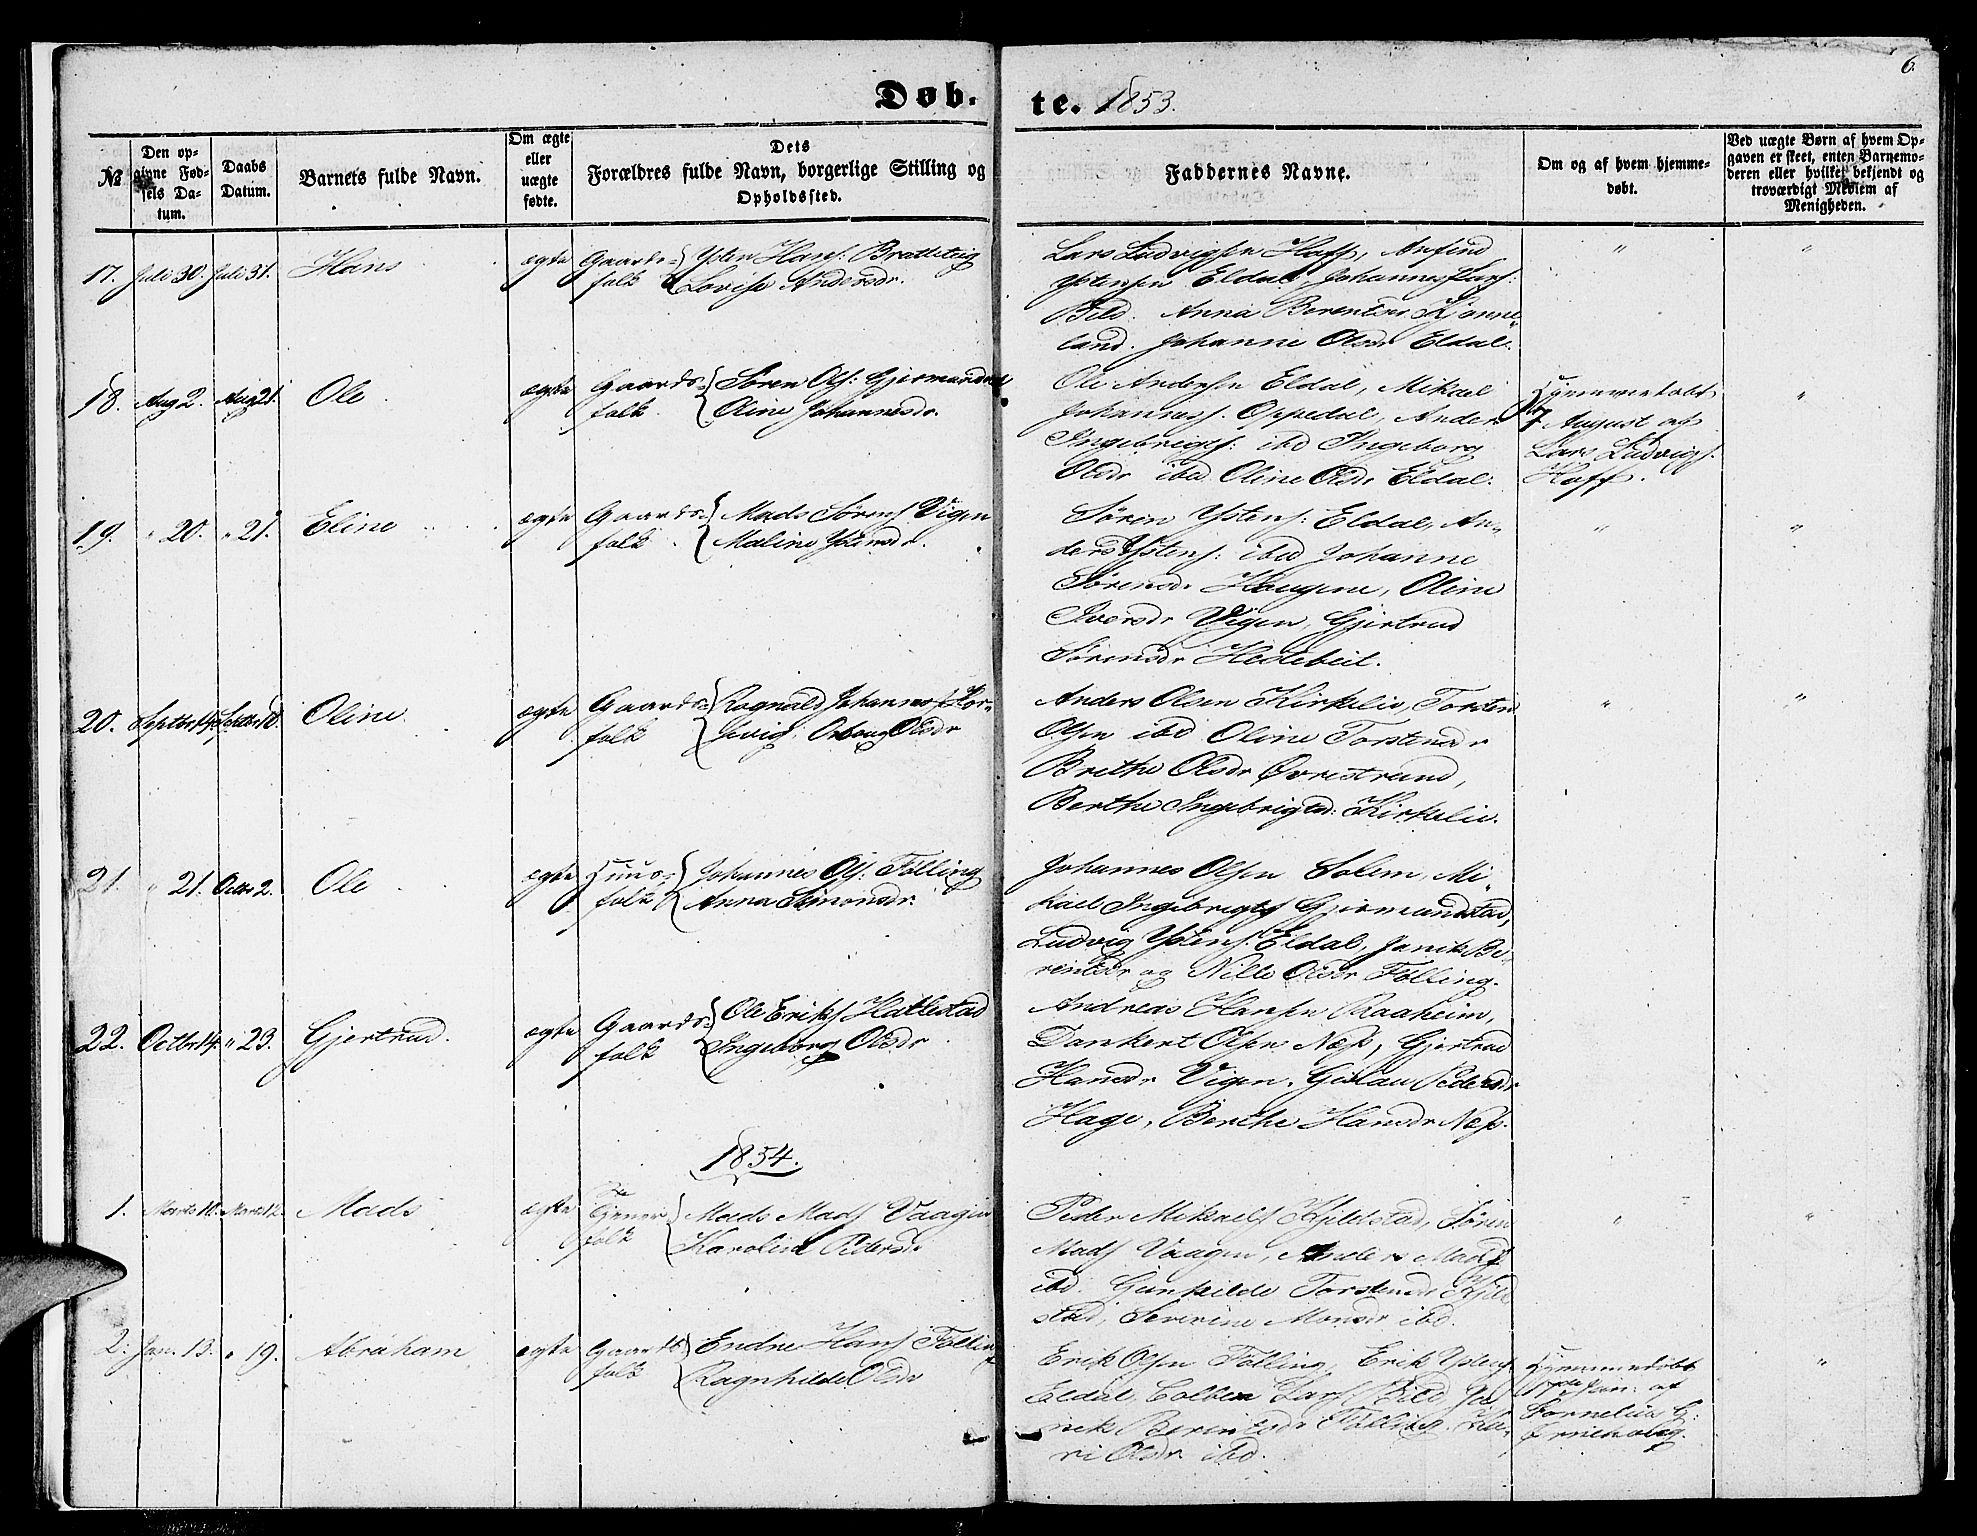 6.
Døb. te. 1853.
№
Den op-
givne Fød-
sels Da-
tum.
Daabs
Datum.
Barnets fulde Navn.
Om ægte
eller
uægte
fødte.
Dets
Forældres fulde Navn, borgerlige Stilling og
Opholdssted.
Faddernes Navne.
Om og af hvem hjemme-
døbt.
Ved uægte Børn af hvem Op-
gaven er skeet, enten Barnemo-
deren eller hvilket bekjendt og
troværdigt Medlem af
Menigheden.
17. Juli 30. Juli 31. Hans ægte Gaards- Ysten Hans: Bratteteig
folk Lovise Andersdr.
Lars Ludvigsen Haff, Anfind
Ystensen Eldal Johannes Lars:
Bild. Anna Berentine Kjønne
land. Johanne Olsdr Eldal.
" "
18. Aug 2. Aug 21 Ole ægte Gaards- Søren Ols: Gjermundstad
folk. Oline Johannesdr.
Ole Andersen Eldal, Mikael
Johanness. Oppedal, Anders
Ingebrigts: ibd Ingeborg
Olsdr ibd Oline Olsdr Eldal:
Hjemmedøbt
7 August af
Lars Ludvigs.
Haff.
"
19. " 20. " 21. Eline ægte Gaards- Mads Sørens Vigen
folk. Maline Ystensdr.
Søren Ystens: Eldal, An-
ders Ystens: ibd Johanne
Sørensdr Haugene, Oline
Iversdr Vigen, Gjertrud
Sørensdr Hestebeit.
" "
20. Septbr 14 Septbr 18. Oline ægte Gaards- Ragnald Johannes Tor-
folk jevig, Olsdr
Anders Olsen Kirkelie, Torsten
Olsen ibd Oline Torstensdr
Brethe Olsdr Øvrestrand,
Berthe Ingebrigtsd: Kirkelie.
" "
21. " 21. Octbr 2. Ole ægte Huus- Johannes Ols: Følling
folk Anna Simonsdr.
Johannes Olsen Solem, Mi-
kael Ingebrigts Gjermundstad,
Ludvig Ystens: Eldal, Janik Be-
rentsdr og Nille Olsdr Følling.
22. Octbr 14. " 23. Gjertrud. ægte Gaards- Ole Eriks Hatlestad
folk Ingeborg Olsdr
Andreas Hansen Raaheim,
Dankert Olsen Næs, Gjertrud
Hansdr Vigen, Gislau Pedersdr
Hage, Berthe Hansdr Næs.
1854.
1. Marts 10. Marts 12. Mads ægte Tjener Mads Mads Vaagen
folk Karoline Pedersdr
Peder Mikaels Kjelstad, Søren
Mads Vaagen, Anders Mads
ibd. Gunhilde Torstensdr Kjel
stad, Severine Monsdr ibd.
" "
2. Jan. 13. " 19. Abraham ægte Gaards folk Endre Hans Følling
Ragnhilde Olsdr
Erik Olsen Følling, Erik Ystens
Eldal, Colben Lars: Bild, Ja
nik Berentsdr Følling, Ka-
ri Olsdr ibd.
Hjemmedøbt
Jan: af
Cornelius
"